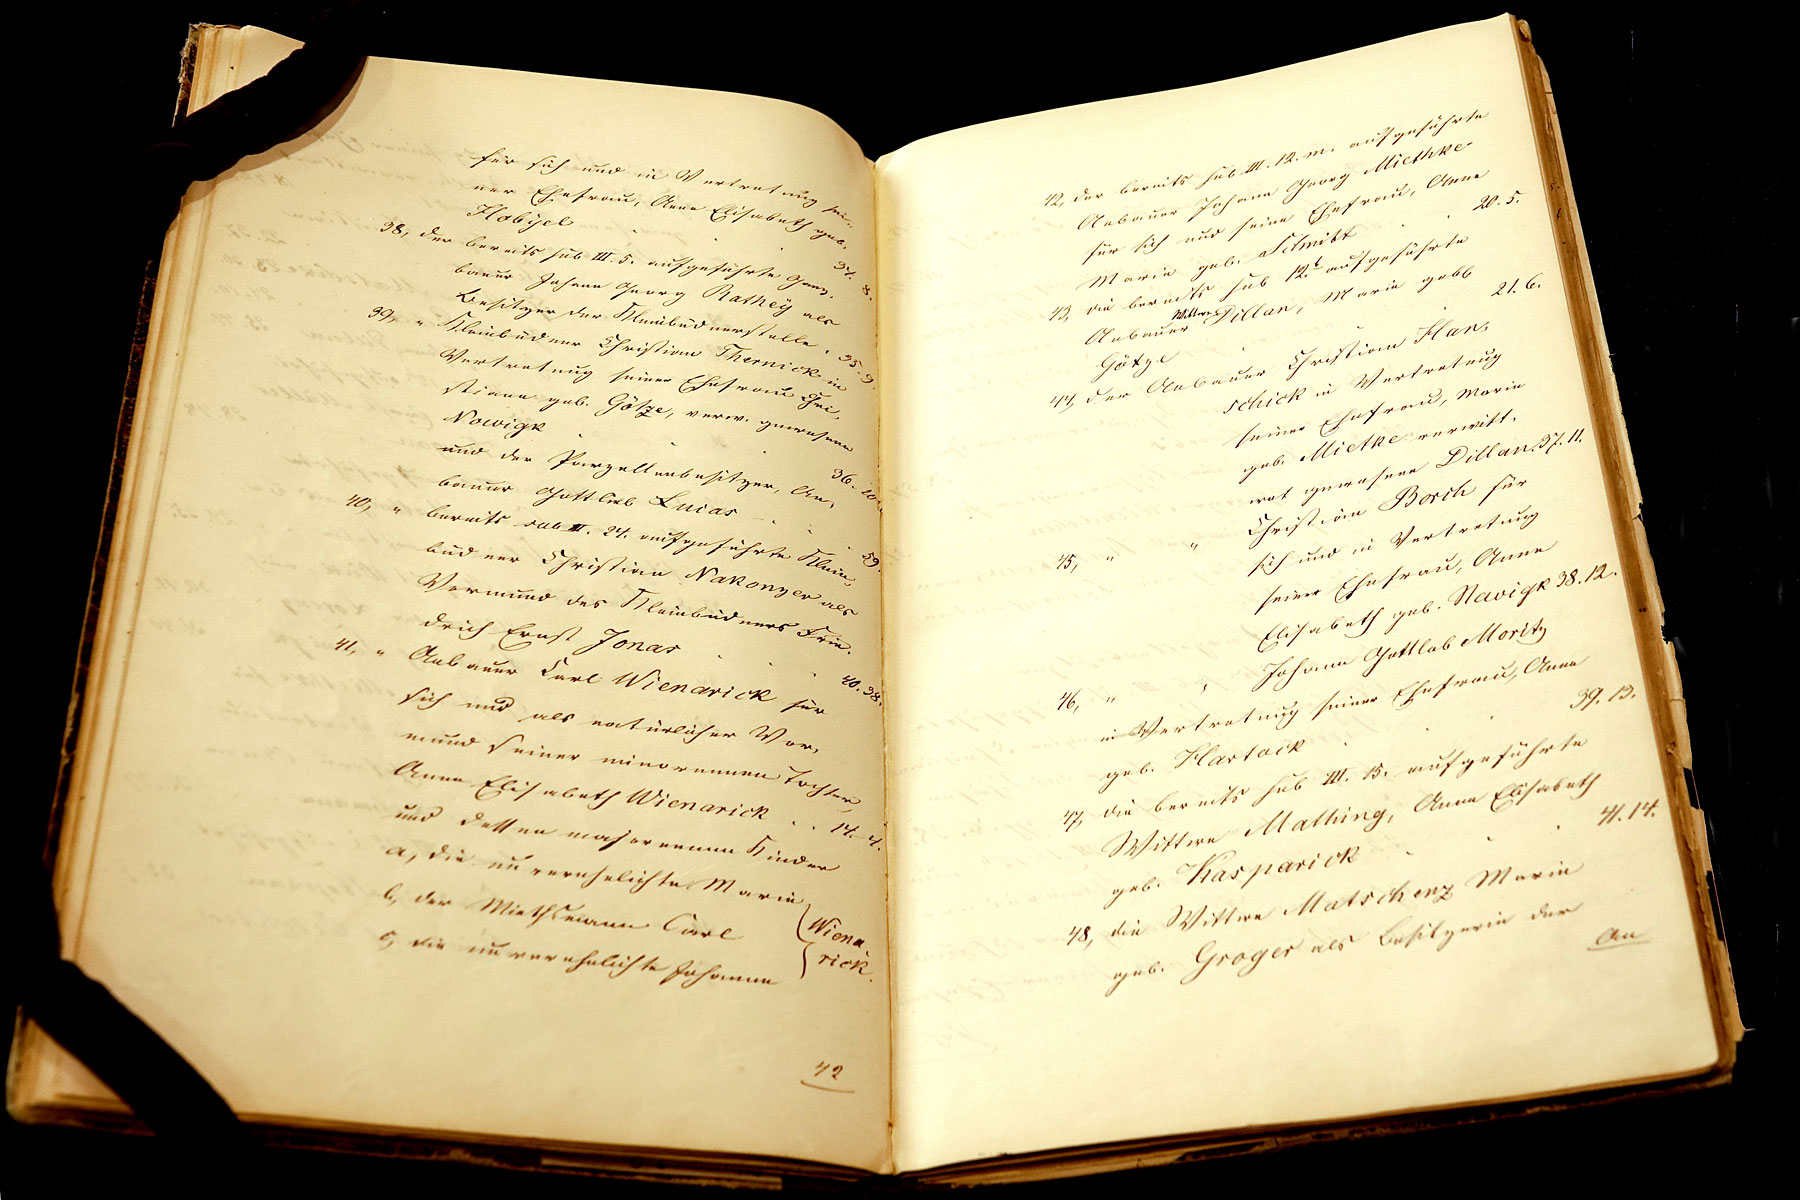 für sich und in Vertretung sei-
ner Ehefrau, Anna Elisabeth geb.
Habijel 34. 8.
38, der bereits sub III. 5. aufgeführte Ganz-
bauer Johann Georg Rathey als
Besitzer der Kleinbüdnerstelle 35. 9.
39, " Kleinbüdner Christian Thernick in
Vertretung seiner Ehefrau Chri-
stiane geb. Götze, verw. gewesene
Nowigk 36. 10.
und der Parzellenbesitzer, An-
bauer Gottlieb Lucas 59.
40, " bereits sub II. 24. aufgeführte Klein-
büdner Christian Nakonzer als
Vormund des Kleinbüdners Frie-
drich Ernst Jonas 40. 38.
41, " Anbauer Carl Wienarick für
sich und als natürlicher Vor-
mund seiner minorennen Tochter,
Anna Elisabeth Wienarick 14. 4.
und dessen majorennen Kinder
a, die unverehelichte Marie
b, der Miethsmann Carl
c, die unverehelichte Johanne
Wiena-
rick.
42
42, der bereits sub III. 12. m. aufgeführte
Anbauer Johann Georg Miethke
für sich und seine Ehefrau, Anna
Marie geb. Schmidt 20. 5.
43, die bereits sub 12. b aufgeführte
Anbauer Wittwe Dillan, Marie gebb
Götze 21. 6.
44, der Anbauer Christian Han-
schick in Vertretung
seiner Ehefrau, Marie
geb. Mietke verwitt-
wet gewesene Dillan. 37. 11.
45, " " Christian Borch für
sich und in Vertretung
seiner Ehefrau, Anna
Elisabeth geb. Nawigk 38. 12.
46, " " Johann Gottlob Moritz
in Vertretung seiner Ehefrau, Anna
geb. Hartack 39. 13.
47, die bereits sub III. 15. aufgeführte
Wittwe Mathing, Anna Elisabeth
geb. Kasparick 41. 14.
48, die Wittwe Matschenz Marie
geb. Groger als Besitzerin der
An